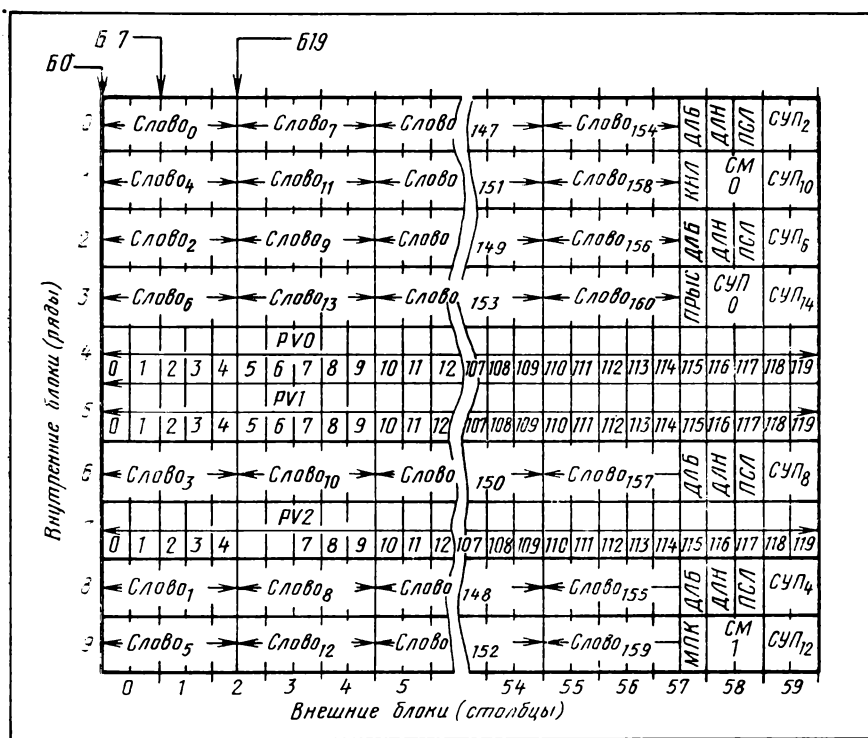 Б 7 Б19
Б0
0 Слово0 Слово7 Слово 147 Слово154 ДЛБ ДЛН ПСЛ СУП2
1 Слово4 Слово11 Слово 151 Слово158 КНЛ СМ 0 СУП10
2 Слово2 Слово9 Слово 149 Слово156 ДЛБ ДЛН ПСЛ СУП6
3 Слово6 Слово13 Слово 153 Слово160 ПРЫС СУП 0 СУП14
4 PV0
0 1 2 3 4 5 6 7 8 9 10 11 12 107 108 109 110 111 112 113 114 115 116 117 118 119
5 PV1
0 1 2 3 4 5 6 7 8 9 10 11 12 107 108 109 110 111 112 113 114 115 116 117 118 119
6 Слово3 Слово10 Слово 150 Слово157 ДЛБ ДЛН ПСЛ СУП8
PV2
0 1 2 3 4 7 8 9 10 11 12 107 108 109 110 111 112 113 114 115 116 117 118 119
8 Слово1 Слово8 Слово 148 Слово155 ДЛБ ДЛН ПСЛ СУП4
9 Слово5 Слово12 Слово 152 Слово159 МПК СМ 1 СУП12
0 1 2 3 4 5 54 55 56 57 58 59
Внешние блоки (столбцы)
Внутренние блоки (ряды)